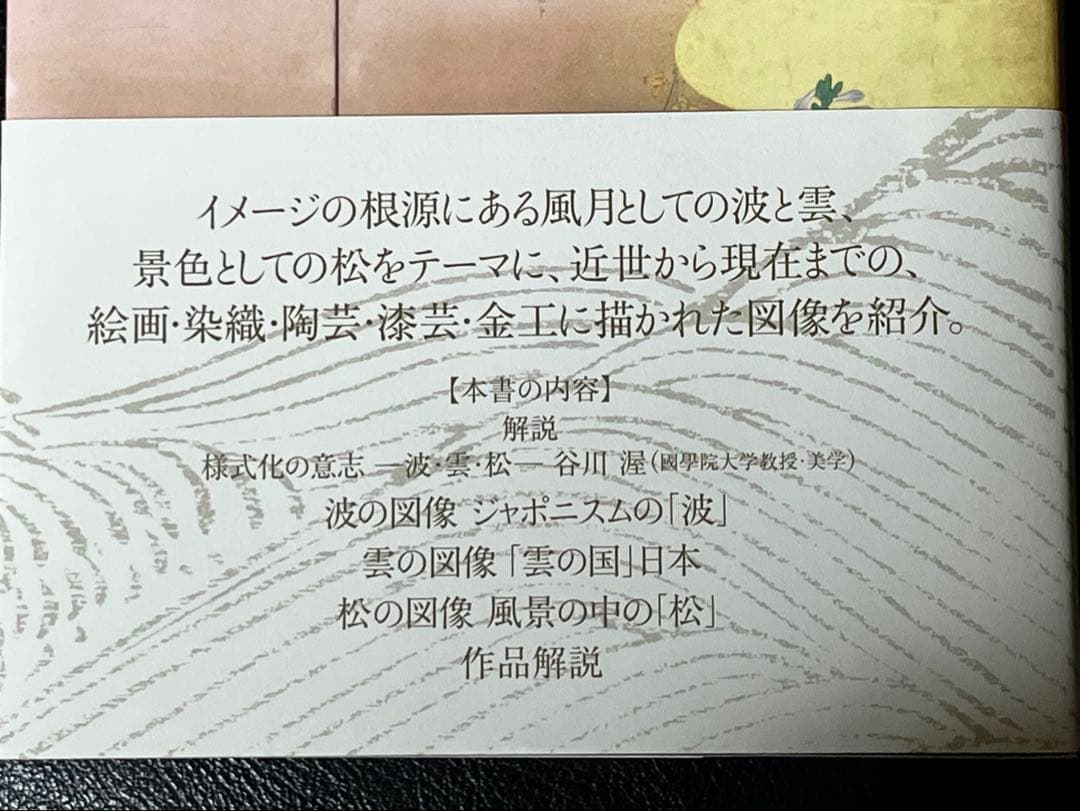 イメージの根源にある風月としての波と雲、
景色としての松をテーマに、近世から現在までの、
絵画・染織・陶芸・漆芸・金工に描かれた図像を紹介。
【本書の内容】
解説
様式化の意志 ―波・雲・松― 谷川 渥(國學院大学教授・美学)
波の図像 ジャポニスムの「波」
雲の図像「雲の国」日本
松の図像 風景の中の「松」
作品解説